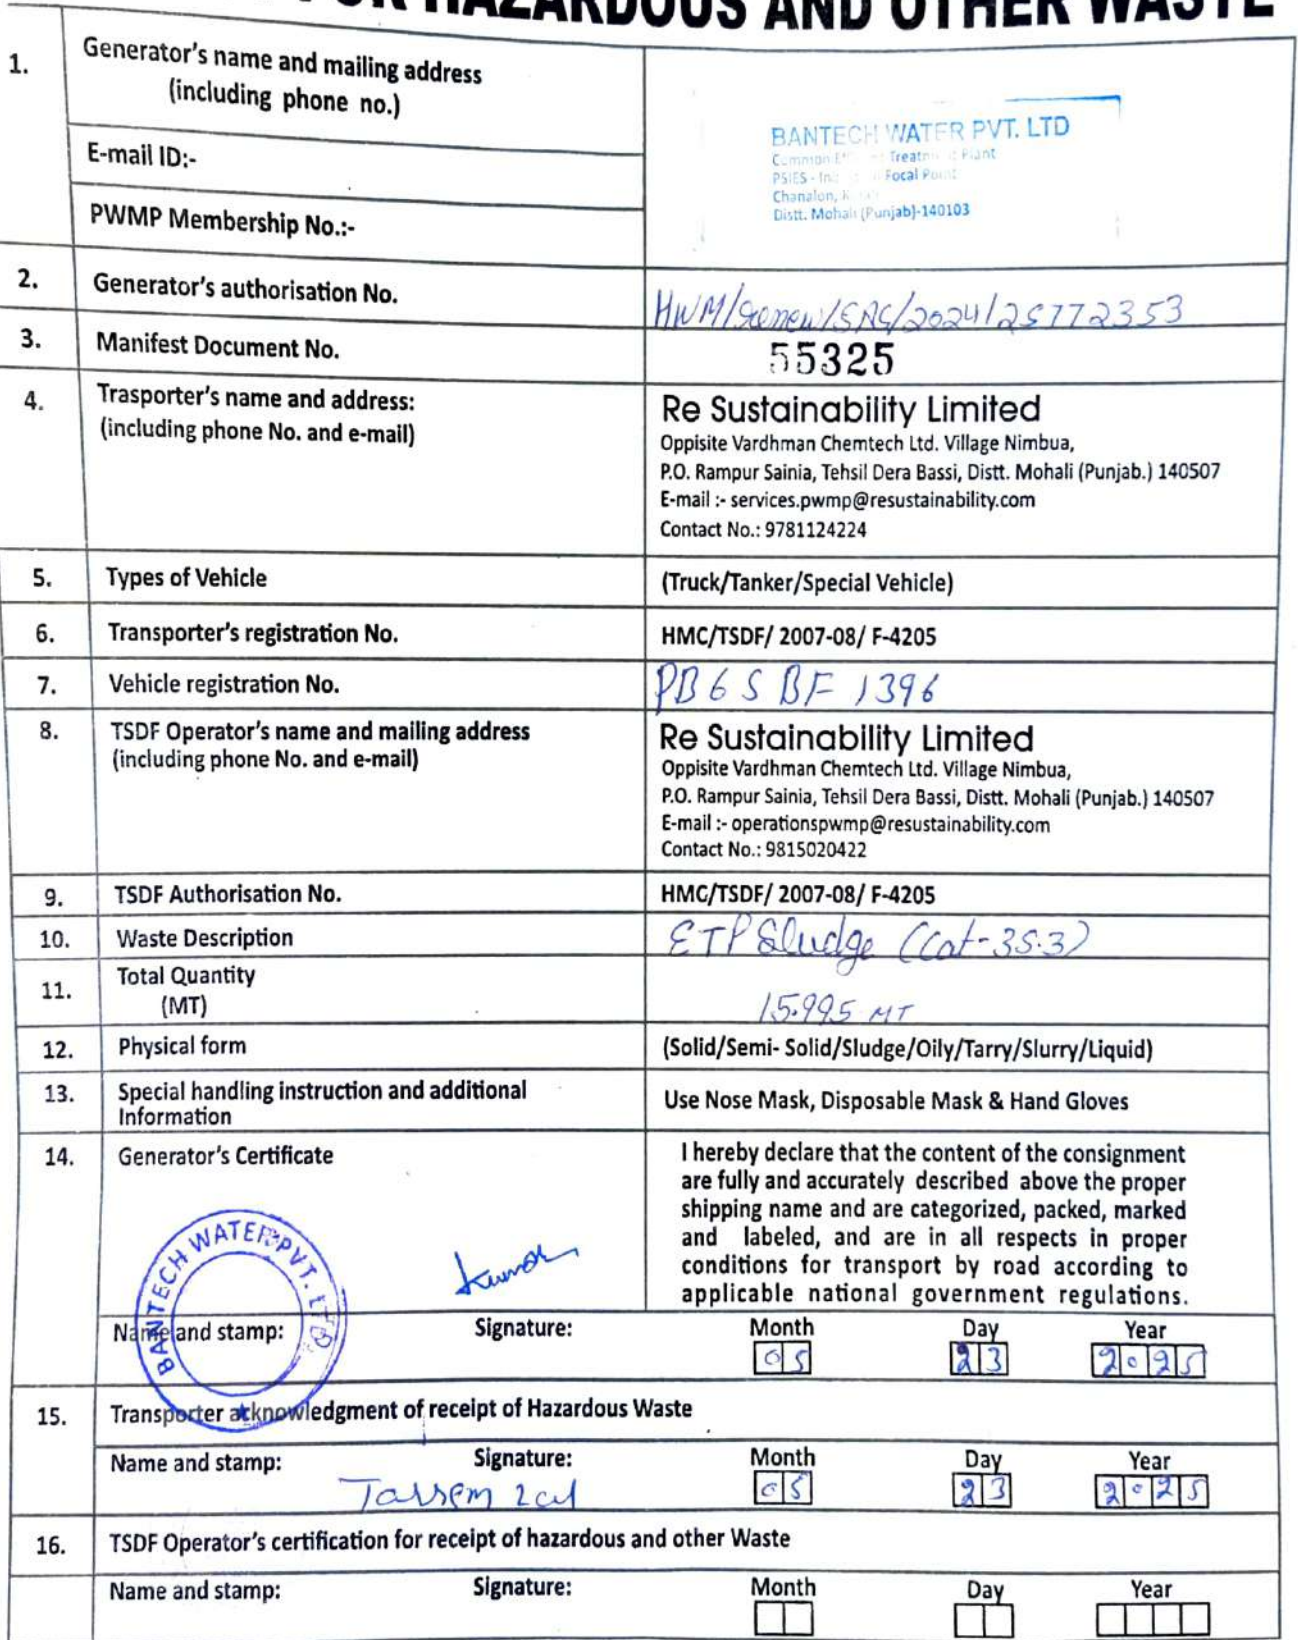 FOR HAZARDOUS AND OTHER WASTE
1. Generator's name and mailing address
(including phone no.)
E-mail ID:-
PWMP Membership No.:-
BANTECH WATER PVT. LTD
Common Treatment Plant
PSIES - Focal Point
Chanalon,
Distt. Mohali (Punjab)-140103
2. Generator's authorisation No. HWM/renew/SAS/2024/25772353
3. Manifest Document No. 55325
4. Trasporter's name and address:
(including phone No. and e-mail)
Re Sustainability Limited
Oppisite Vardhman Chemtech Ltd. Village Nimbua,
P.O. Rampur Sainia, Tehsil Dera Bassi, Distt. Mohali (Punjab.) 140507
E-mail :- services.pwmp@resustainability.com
Contact No.: 9781124224
5. Types of Vehicle (Truck/Tanker/Special Vehicle)
6. Transporter's registration No. HMC/TSDF/ 2007-08/ F-4205
7. Vehicle registration No. PB65BF 1396
8. TSDF Operator's name and mailing address
(including phone No. and e-mail)
Re Sustainability Limited
Oppisite Vardhman Chemtech Ltd. Village Nimbua,
P.O. Rampur Sainia, Tehsil Dera Bassi, Distt. Mohali (Punjab.) 140507
E-mail :- operationspwmp@resustainability.com
Contact No.: 9815020422
9. TSDF Authorisation No. HMC/TSDF/ 2007-08/ F-4205
10. Waste Description ETP Sludge (Cat-35.3)
11. Total Quantity
(MT) 15.995 MT
12. Physical form (Solid/Semi- Solid/Sludge/Oily/Tarry/Slurry/Liquid)
13. Special handling instruction and additional
Information
Use Nose Mask, Disposable Mask & Hand Gloves
14. Generator's Certificate
I hereby declare that the content of the consignment
are fully and accurately described above the proper
shipping name and are categorized, packed, marked
and labeled, and are in all respects in proper
conditions for transport by road according to
applicable national government regulations.
BANTECH WATER PVT. LTD.
Name and stamp: Signature: Month Day Year
05 23 2025
15. Transporter acknowledgment of receipt of Hazardous Waste
Name and stamp: Signature: Month Day Year
Tarsem Lal 05 23 2025
16. TSDF Operator's certification for receipt of hazardous and other Waste
Name and stamp: Signature: Month Day Year